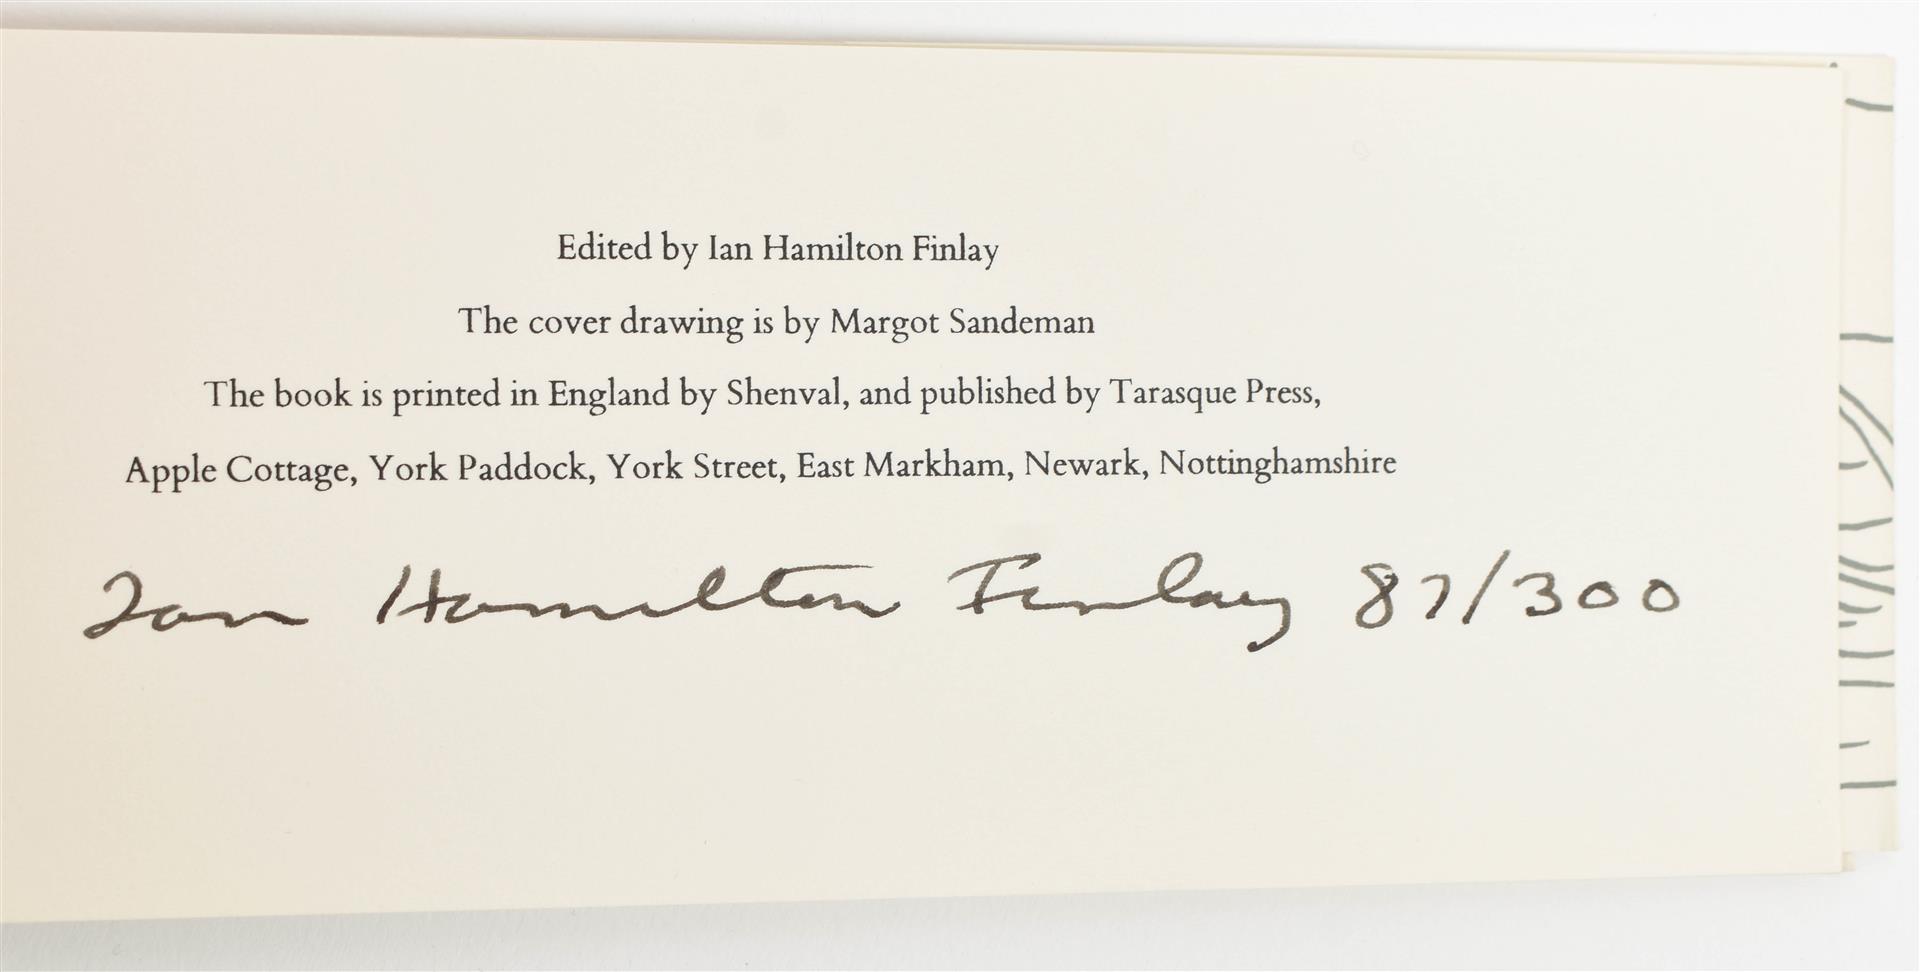 Edited by Ian Hamilton Finlay
The cover drawing is by Margot Sandeman
The book is printed in England by Shenval, and published by Tarasque Press,
Apple Cottage, York Paddock, York Street, East Markham, Newark, Nottinghamshire
Ian Hamilton Finlay 87/300